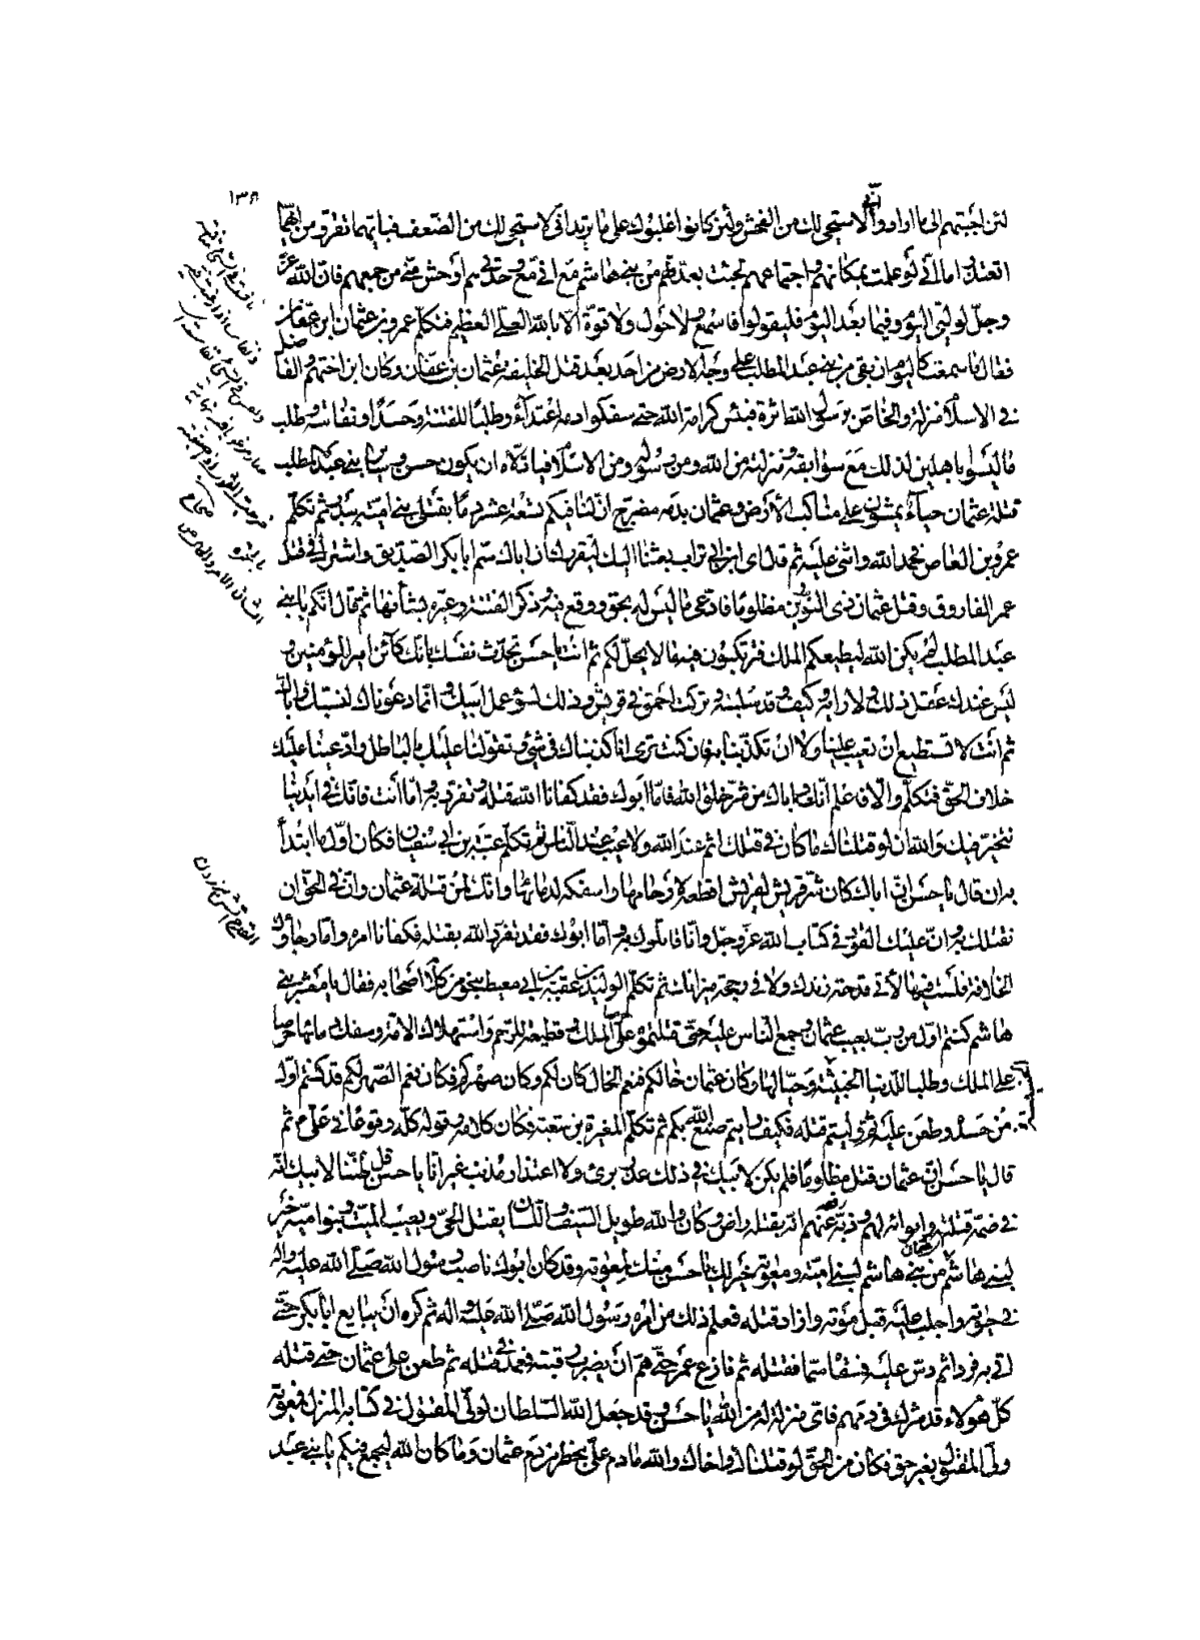 ١٣٨
لئن اجبتهم الى ما ارادوا انّى لاستحيى لك من الفحش ولئن كانوا غلبوك على ما تريد انى لاستحيى لك من الضعف فبايهما تقرّ ومن ايهما
تعتذر اما انى لو علمت بمكانهم واجتماعهم لجئت بعدتهم من بنى هاشم مع انى مع وحدتى هم اوحش منى من جمعهم فان الله عزّ
وجلّ لوليى اليوم وفيما بعد اليوم فليقولوا فاسمع ولا حول ولا قوة الا بالله العلى العظيم فتكلم عمرو بن عثمان ابن عفان
فقال ما سمعت كاليوم ان بقى من بنى عبد المطلب على وجه الارض من احد بعد قتل الخليفة عثمان بن عفان وكان ابن اختهم والفاضل
فى الاسلام منزلة والخاص برسول الله اثرة فبئس كرامة الله حتى سفكوا دمه اعتداءً وطلبًا للفتنة وحسدًا ونفاسة وطلب
ما ليسوا باهلين لذلك مع سوابقه ومنزلته من الله ومن رسوله ومن الاسلام فيا ذلاه ان يكون حسن وساير بنى عبد المطلب
قتلة عثمان احياءً يمشون على مناكب الارض وعثمان بدمه مضرج مع ان لنا فيكم تسعة عشر دمًا بقتلى بنى امية ببدر ثم تكلم
عمرو بن العاص فحمد الله واثنى عليه ثم قال اى ابن ابى تراب بعثنا اليك لنقررك ان اباك سمّ ابا بكر الصديق واشترك فى قتل
عمر الفاروق وقتل عثمان ذى النورين مظلومًا فادعى ما ليس له بحق ووقع فيه وذكر الفتنة وعيره بشأنها ثم قال انكم يا بنى
عبد المطلب لم يكن الله ليعطيكم الملك فترتكبون فيه ما لا يحل لكم ثم انت يا حسن تحدّث نفسك بانك كائن امير المؤمنين و
ليس عندك عقل ذلك ولا رايه وكيف وقد سلبته وتركت احمق فى قريش وذلك لسوء عمل ابيك وانما دعوناك لنسبك واباك
ثم انت لا تستطيع ان تعيب علينا ولا ان تكذبنا به فان كنت ترى انا كذبناك فى شئ وتقولنا عليك بالباطل وادعينا عليك
خلاف الحق فتكلم والا فاعلم انك واباك من شر خلق الله فاما ابوك فقد كفانا الله قتله وتفرد به واما انت فانك فى ايدينا
نتخير فيك والله ان لو قتلناك ما كان فى قتلك اثم عند الله ولا عيب عند الناس ثم تكلم عتبة بن ابى سفيان فكان اول ما ابتدأ
به ان قال يا حسن ان اباك كان شر قريش لقريش اقطعه لارحامها واسفكه لدمائها وانك لمن قتلة عثمان وان فى الحق ان
نقتلك به وان عليك القود فى كتاب الله عز وجل وانا قاتلوك به واما ابوك فقد تفرد الله بقتله فكفانا امره واما رجاؤك
الخلافة فلست فيها لا فى قدحة زندك ولا فى رجحة ميزانك ثم تكلم الوليد بن عقبة بن ابى معيط بنحو من كلام اصحابه فقال يا معشر بنى
هاشم كنتم اول من دبّ بعيب عثمان وجمع الناس عليه حتى قتلتموه حرصا على الملك وقطيعة للرحم واستهلاك الامة وسفك دمائها حرصا
على الملك وطلبا للدنيا الخبيثة وحبّا لها وكان عثمان خالكم فنعم الخال كان لكم وكان صهركم فكان نعم الصهر لكم قد كنتم اول
من حسده وطعن عليه ثم وليتم قتله فكيف رايتم صنع الله بكم ثم تكلم المغيرة بن شعبة فكان كلامه وقوله كله وقوعًا فى على ثم
قال يا حسن ان عثمان قتل مظلومًا فلم يكن لابيك فى ذلك عذر برئ ولا اعتذار مذنب غير انا يا حسن قد ظننا لابيك انه
فى ضمه قتلته وايوائه لهم وذبّه عنهم انه بقتله راض وكان والله طويل السيف واللسان يقتل الحىّ ويعيب الميت وبنو امية خير
لبنى هاشم من بنى هاشم لبنى امية ومعوية خير لك يا حسن منك لمعوية وقد كان ابوك ناصب رسول الله صلى الله عليه واله
فى حيوته واجلب عليه قبل موته واراد قتله فعلم ذلك من امره رسول الله صلى الله عليه واله ثم كره ان يبايع ابا بكر حتى
اتى به قودا ثم دسّ عليه فسقاه سمّا فقتله ثم نازع عمر حتى همّ ان يضرب رقبته فعمد فى قتله ثم طعن على عثمان حتى قتله
كلّ هؤلاء قد شرك فى دمهم فاى منزلة له من الله يا حسن وقد جعل الله السلطان لولى المقتول فى كتابه المنزل فمعوية
ولى المقتول بغير حق فكان من الحق لو قتلناك واخاك والله ما دم على بخطر من دم عثمان وما كان الله ليجمع فيكم يا بنى عبد